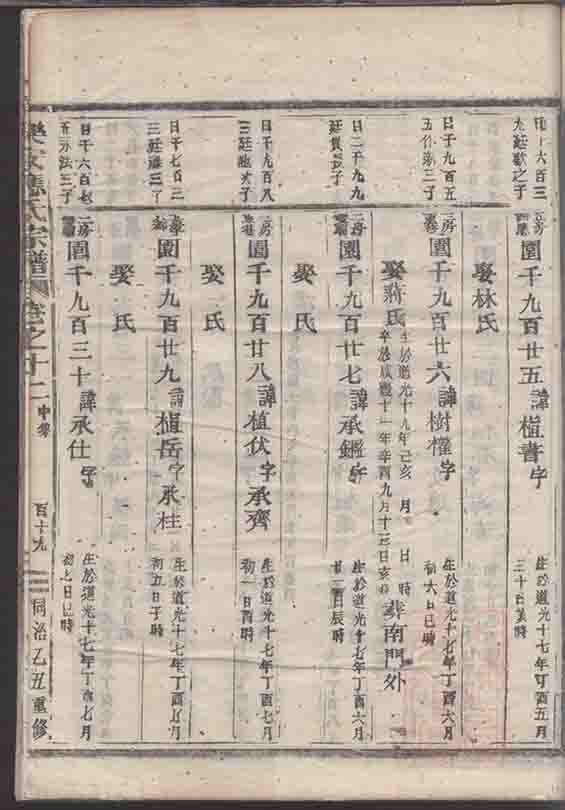 六百三
廷歌之子
房
園千九百廿五諱植書字
生於道光十七年丁酉五月
三十日亥時
娶林氏
日千九百五
五 弟三子
二房
園千九百廿六諱樹權字
生於道光十七年丁酉六月
初六日巳時
娶蔣氏
生於道光十九年己亥 月 日 時
卒於咸豐十一年辛酉九月十三日亥時
葬南門外
日二千九九
廷 子
二房
園千九百廿七諱承鑑字
生於道光十七年丁酉六月
廿三日辰時
娶 氏
日千九百八
三廷 次子
二房
園千九百廿八諱植伏字承齊
生於道光十七年丁酉七月
初一日酉時
娶 氏
日千七百三
三廷 三子
園千九百廿九諱植岳字承柱
生於道光十七年丁酉七月
初五日子時
娶 氏
日千六百七
五示法三子
二房
園千九百三十諱承仕字
生於道光十七年丁酉七月
初七日巳時
樂安 氏宗譜 卷之十二
中學
百十九
同治乙丑重修